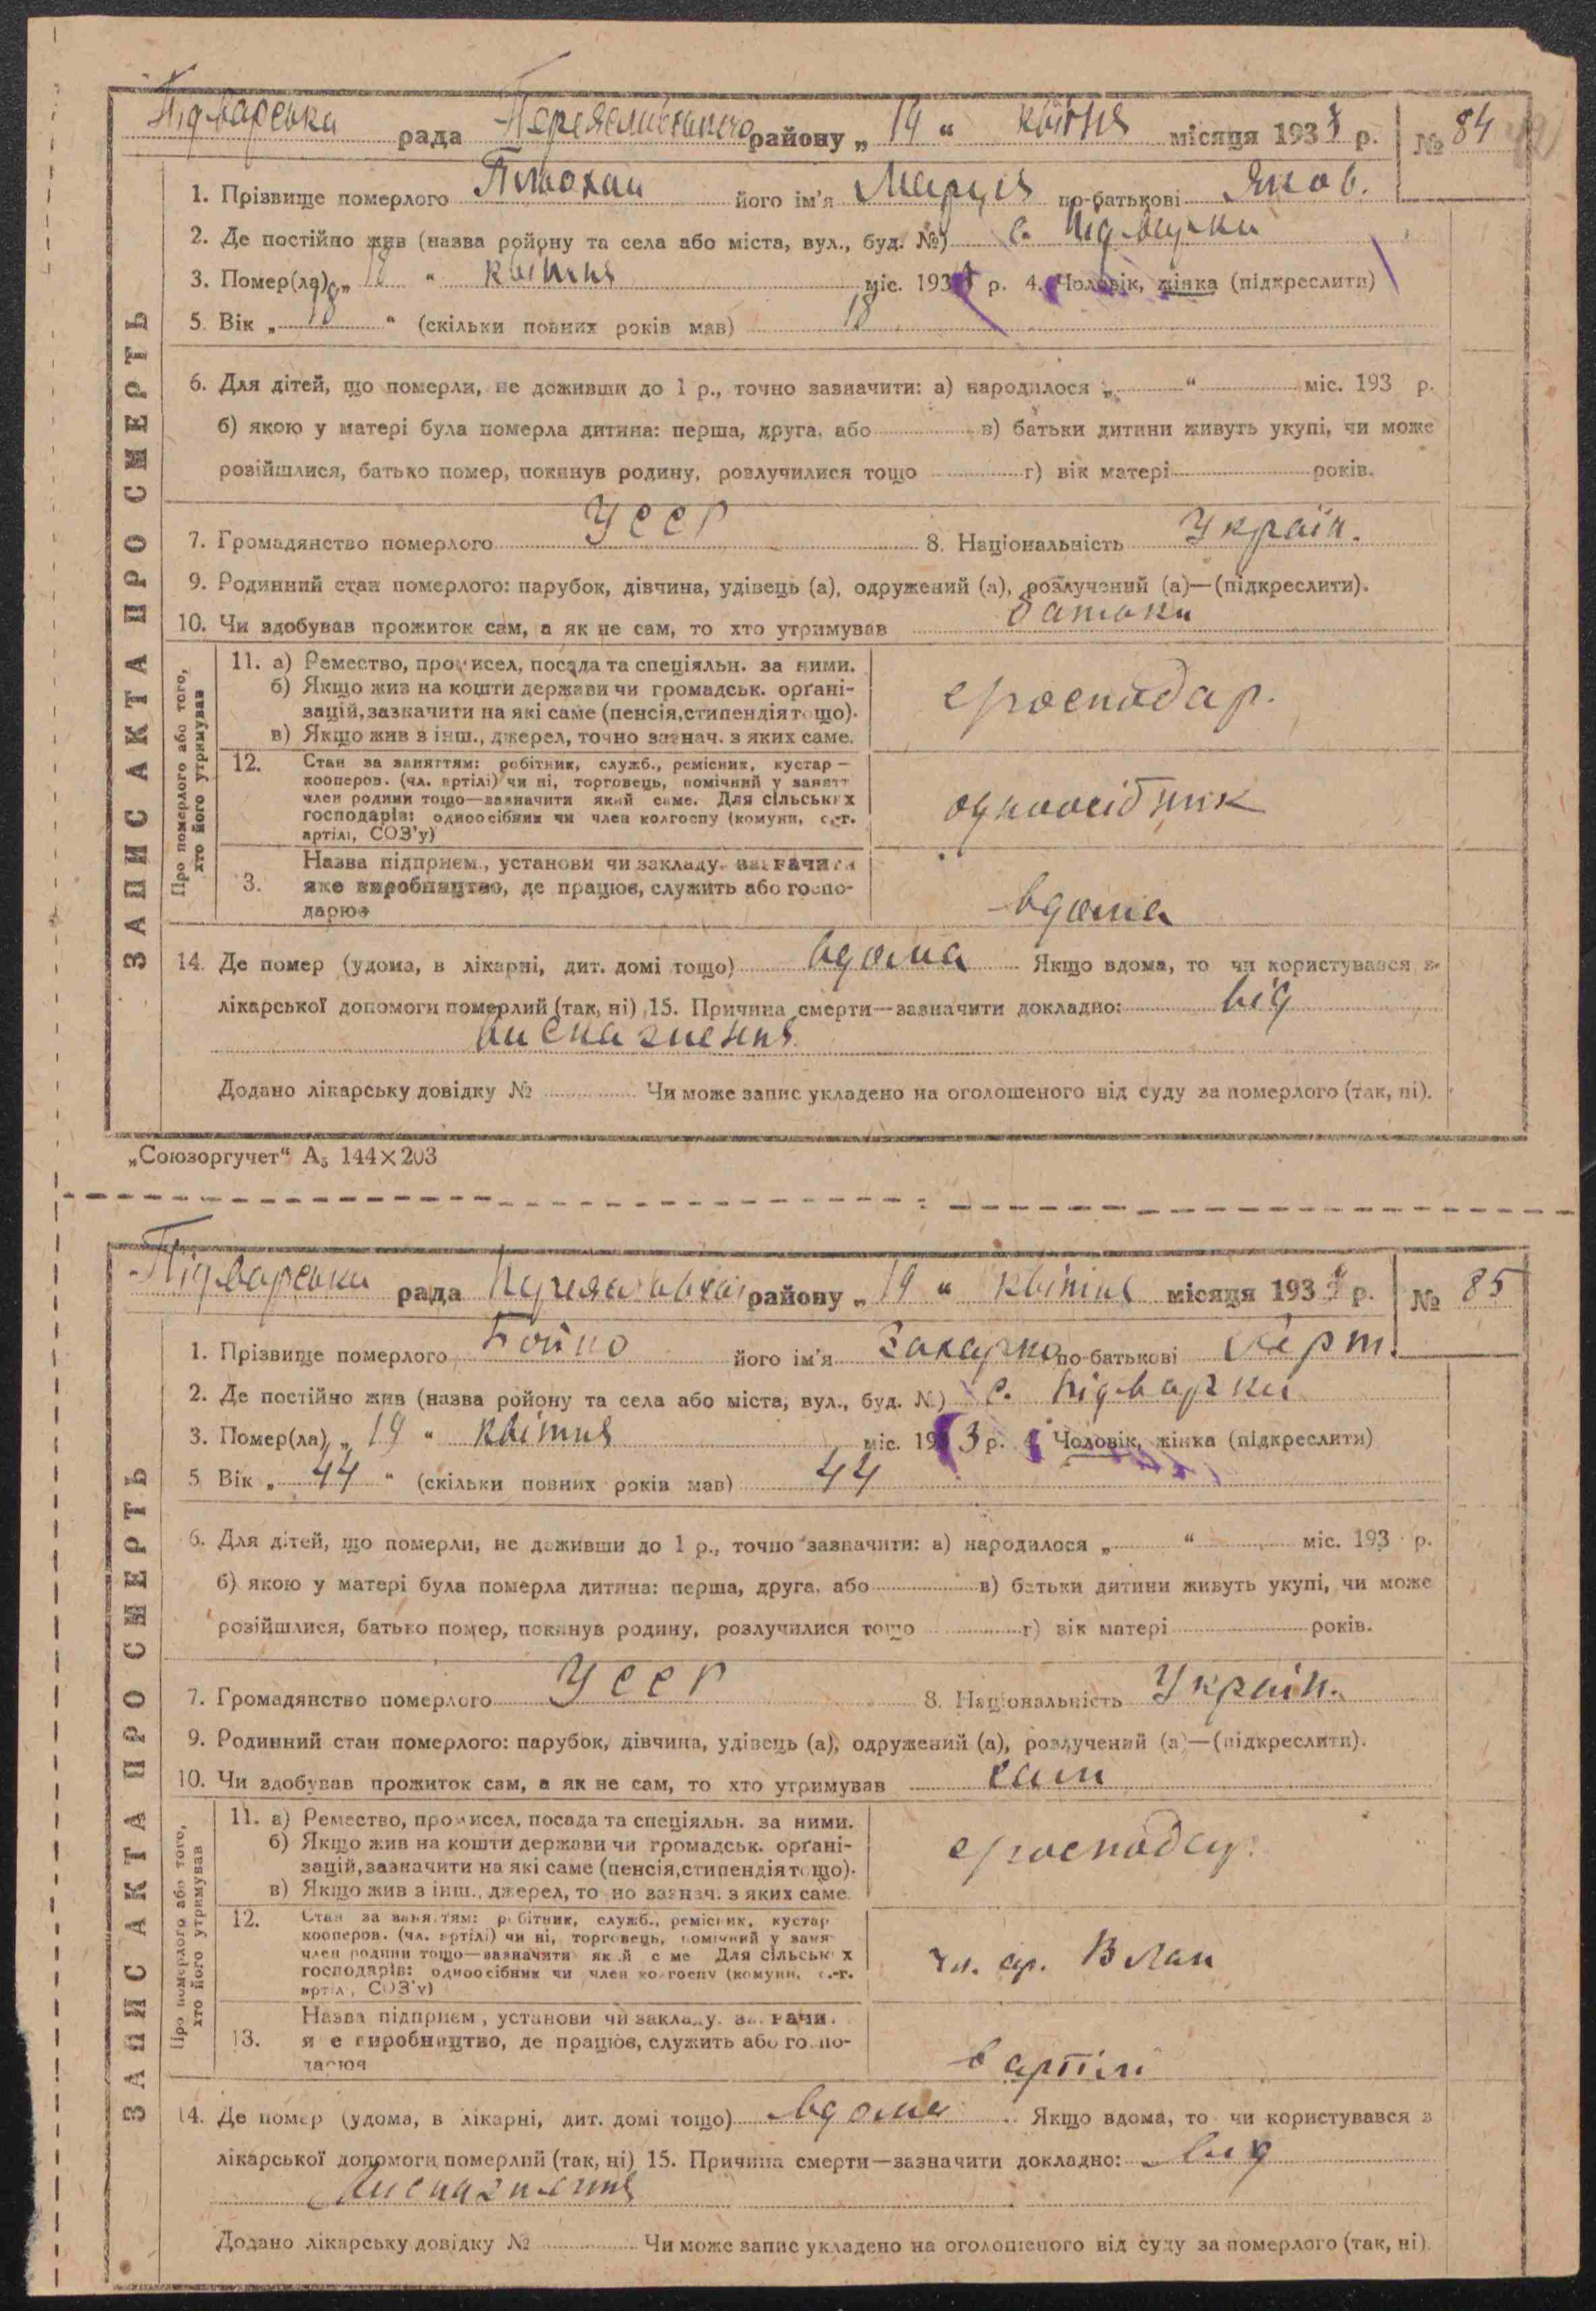 Підварська рада Переяславського району „ 19 “ квітня місяця 1933 р. № 84
1. Прізвище померлого його ім'я Марія по-батькові Яков.
2. Де постійно жив (назва ройону та села або міста, вул., буд. №) с. Підварки
3. Помер(ла) „ 18 “ квітня міс. 193 р. 4. Чоловік, жінка (підкреслити)
5. Вік „ 18 “ (скільки повних років мав) 18
6. Для дітей, що померли, не доживши до 1 р., точно зазначити: а) народилося „ “ міс. 193 р.
б) якою у матері була померла дитина: перша, друга, або в) батьки дитини живуть укупі, чи може
розійшлися, батько помер, покинув родину, розлучилися тощо г) вік матері років.
7. Громадянство померлого УССР 8. Національність Україн.
9. Родинний стан померлого: парубок, дівчина, удівець (а), одружений (а), розлучений (а)—(підкреслити).
10. Чи здобував прожиток сам, а як не сам, то хто утримував батьки
ЗАПИС АКТА ПРО СМЕРТЬ
Про померлого або того, хто його утримував
11. а) Ремество, промисел, посада та спеціяльн. за ними.
б) Якщо жив на кошти держави чи громадськ. орґані-
зацій, зазначити на які саме (пенсія, стипендія тощо).
в) Якщо жив з інш., джерел, точно зазнач. з яких саме.
12. Стан за заняттям: робітник, служб., ремісник, кустар —
кооперов. (чл. артілі) чи ні, торговець, помічний у занятт
член родини тощо—зазначити який саме. Для сільських
господарів: одноосібник чи член колгоспу (комуни, с.-г.
артілі, СОЗ'у) одноосібник
13. Назва підприєм., установи чи закладу, зазначити
яке виробництво, де працює, служить або госпо-
дарює вдома
14. Де помер (удома, в лікарні, дит. домі тощо) вдома Якщо вдома, то чи користувався з
лікарської допомоги померлий (так, ні) 15. Причина смерти—зазначити докладно: від
виснаження
Додано лікарську довідку № Чи може запис укладено на оголошеного від суду за померлого (так, ні).
„Союзоргучет“ А₅ 144×203
Підварська рада району „ 19 “ квітня місяця 1933 р. № 85
1. Прізвище померлого Бойко його ім'я Захарко по-батькові
2. Де постійно жив (назва ройону та села або міста, вул., буд. №) с. Підварки
3. Помер(ла) „ 19 “ квітня міс. 193 р. 4. Чоловік, жінка (підкреслити)
5. Вік „ 44 “ (скільки повних років мав) 44
6. Для дітей, що померли, не доживши до 1 р., точно зазначити: а) народилося „ “ міс. 193 р.
б) якою у матері була померла дитина: перша, друга, або в) батьки дитини живуть укупі, чи може
розійшлися, батько помер, покинув родину, розлучилися тощо г) вік матері років.
7. Громадянство померлого УССР 8. Національність Україн.
9. Родинний стан померлого: парубок, дівчина, удівець (а), одружений (а), розлучений (а)—(підкреслити).
10. Чи здобував прожиток сам, а як не сам, то хто утримував сам
ЗАПИС АКТА ПРО СМЕРТЬ
Про померлого або того, хто його утримував
11. а) Ремество, промисел, посада та спеціяльн. за ними.
б) Якщо жив на кошти держави чи громадськ. орґані-
зацій, зазначити на які саме (пенсія, стипендія тощо).
в) Якщо жив з інш., джерел, точно зазнач. з яких саме.
12. Стан за заняттям: робітник, служб., ремісник, кустар
кооперов. (чл. артілі) чи ні, торговець, помічний у заня
член родини тощо—зазначити який саме Для сільських
господарів: одноосібник чи член колгоспу (комуни, с.-г.
артілі, СОЗ'у)
13. Назва підприєм., установи чи закладу, зазначи.
яке виробництво, де працює, служить або госпо-
дарює в артілі
14. Де помер (удома, в лікарні, дит. домі тощо) вдома Якщо вдома, то чи користувався з
лікарської допомоги померлий (так, ні) 15. Причина смерти—зазначити докладно: від
виснаження
Додано лікарську довідку № Чи може запис укладено на оголошеного від суду за померлого (так, ні).